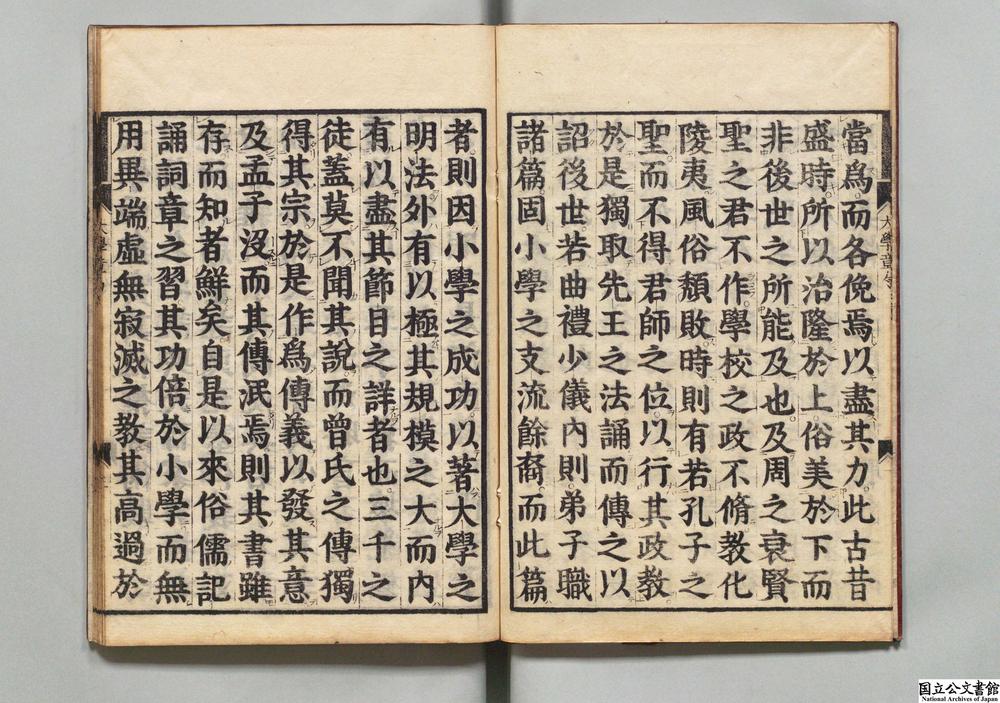 當爲而各俛焉以盡其力此古昔
盛時所以治隆於上俗美於下而
非後世之所能及也及周之衰賢
聖之君不作學校之政不脩教化
陵夷風俗頹敗時則有若孔子之
聖而不得君師之位以行其政教
於是獨取先王之法誦而傳之以
詔後世若曲禮少儀內則弟子職
諸篇固小學之支流餘裔而此篇
者則因小學之成功以著大學之
明法外有以極其規模之大而內
有以盡其節目之詳者也三千之
徒蓋莫不聞其說而曾氏之傳獨
得其宗於是作爲傳義以發其意
及孟子沒而其傳泯焉則其書雖
存而知者鮮矣自是以來俗儒記
誦詞章之習其功倍於小學而無
用異端虛無寂滅之教其高過於
国立公文書館
National Archives of Japan